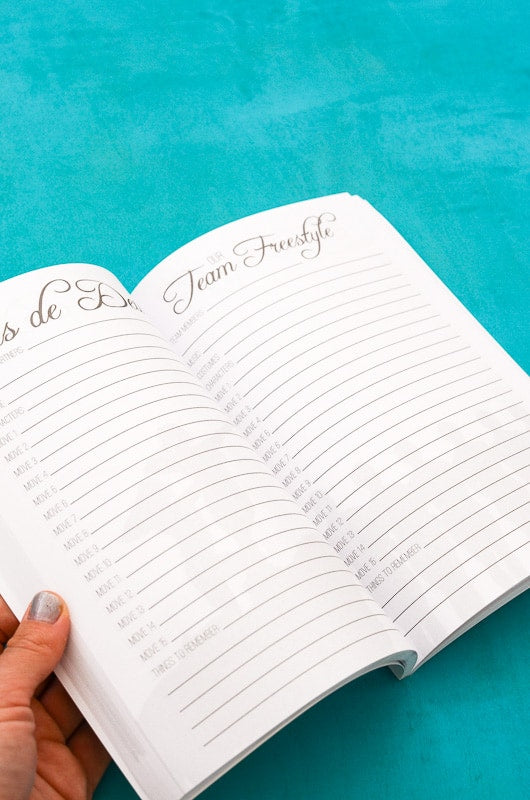 s de De
PARTNERS:
CHARACTERS:
MOVE 1
MOVE 2
MOVE 3
MOVE 4
MOVE 5
MOVE 6
MOVE 7
MOVE 8
MOVE 9
MOVE 10
MOVE 11
MOVE 12
MOVE 13
MOVE 14
MOVE 15
THINGS TO REMEMBER:
OUR
Team Freestyle
TEAM MEMBERS:
MUSIC:
COSTUMES:
CHARACTERS:
MOVE 1
MOVE 2
MOVE 3
MOVE 4
MOVE 5
MOVE 6
MOVE 7
MOVE 8
MOVE 9
MOVE 10
MOVE 11
MOVE 12
MOVE 13
MOVE 14
MOVE 15
THINGS TO REMEMBER: